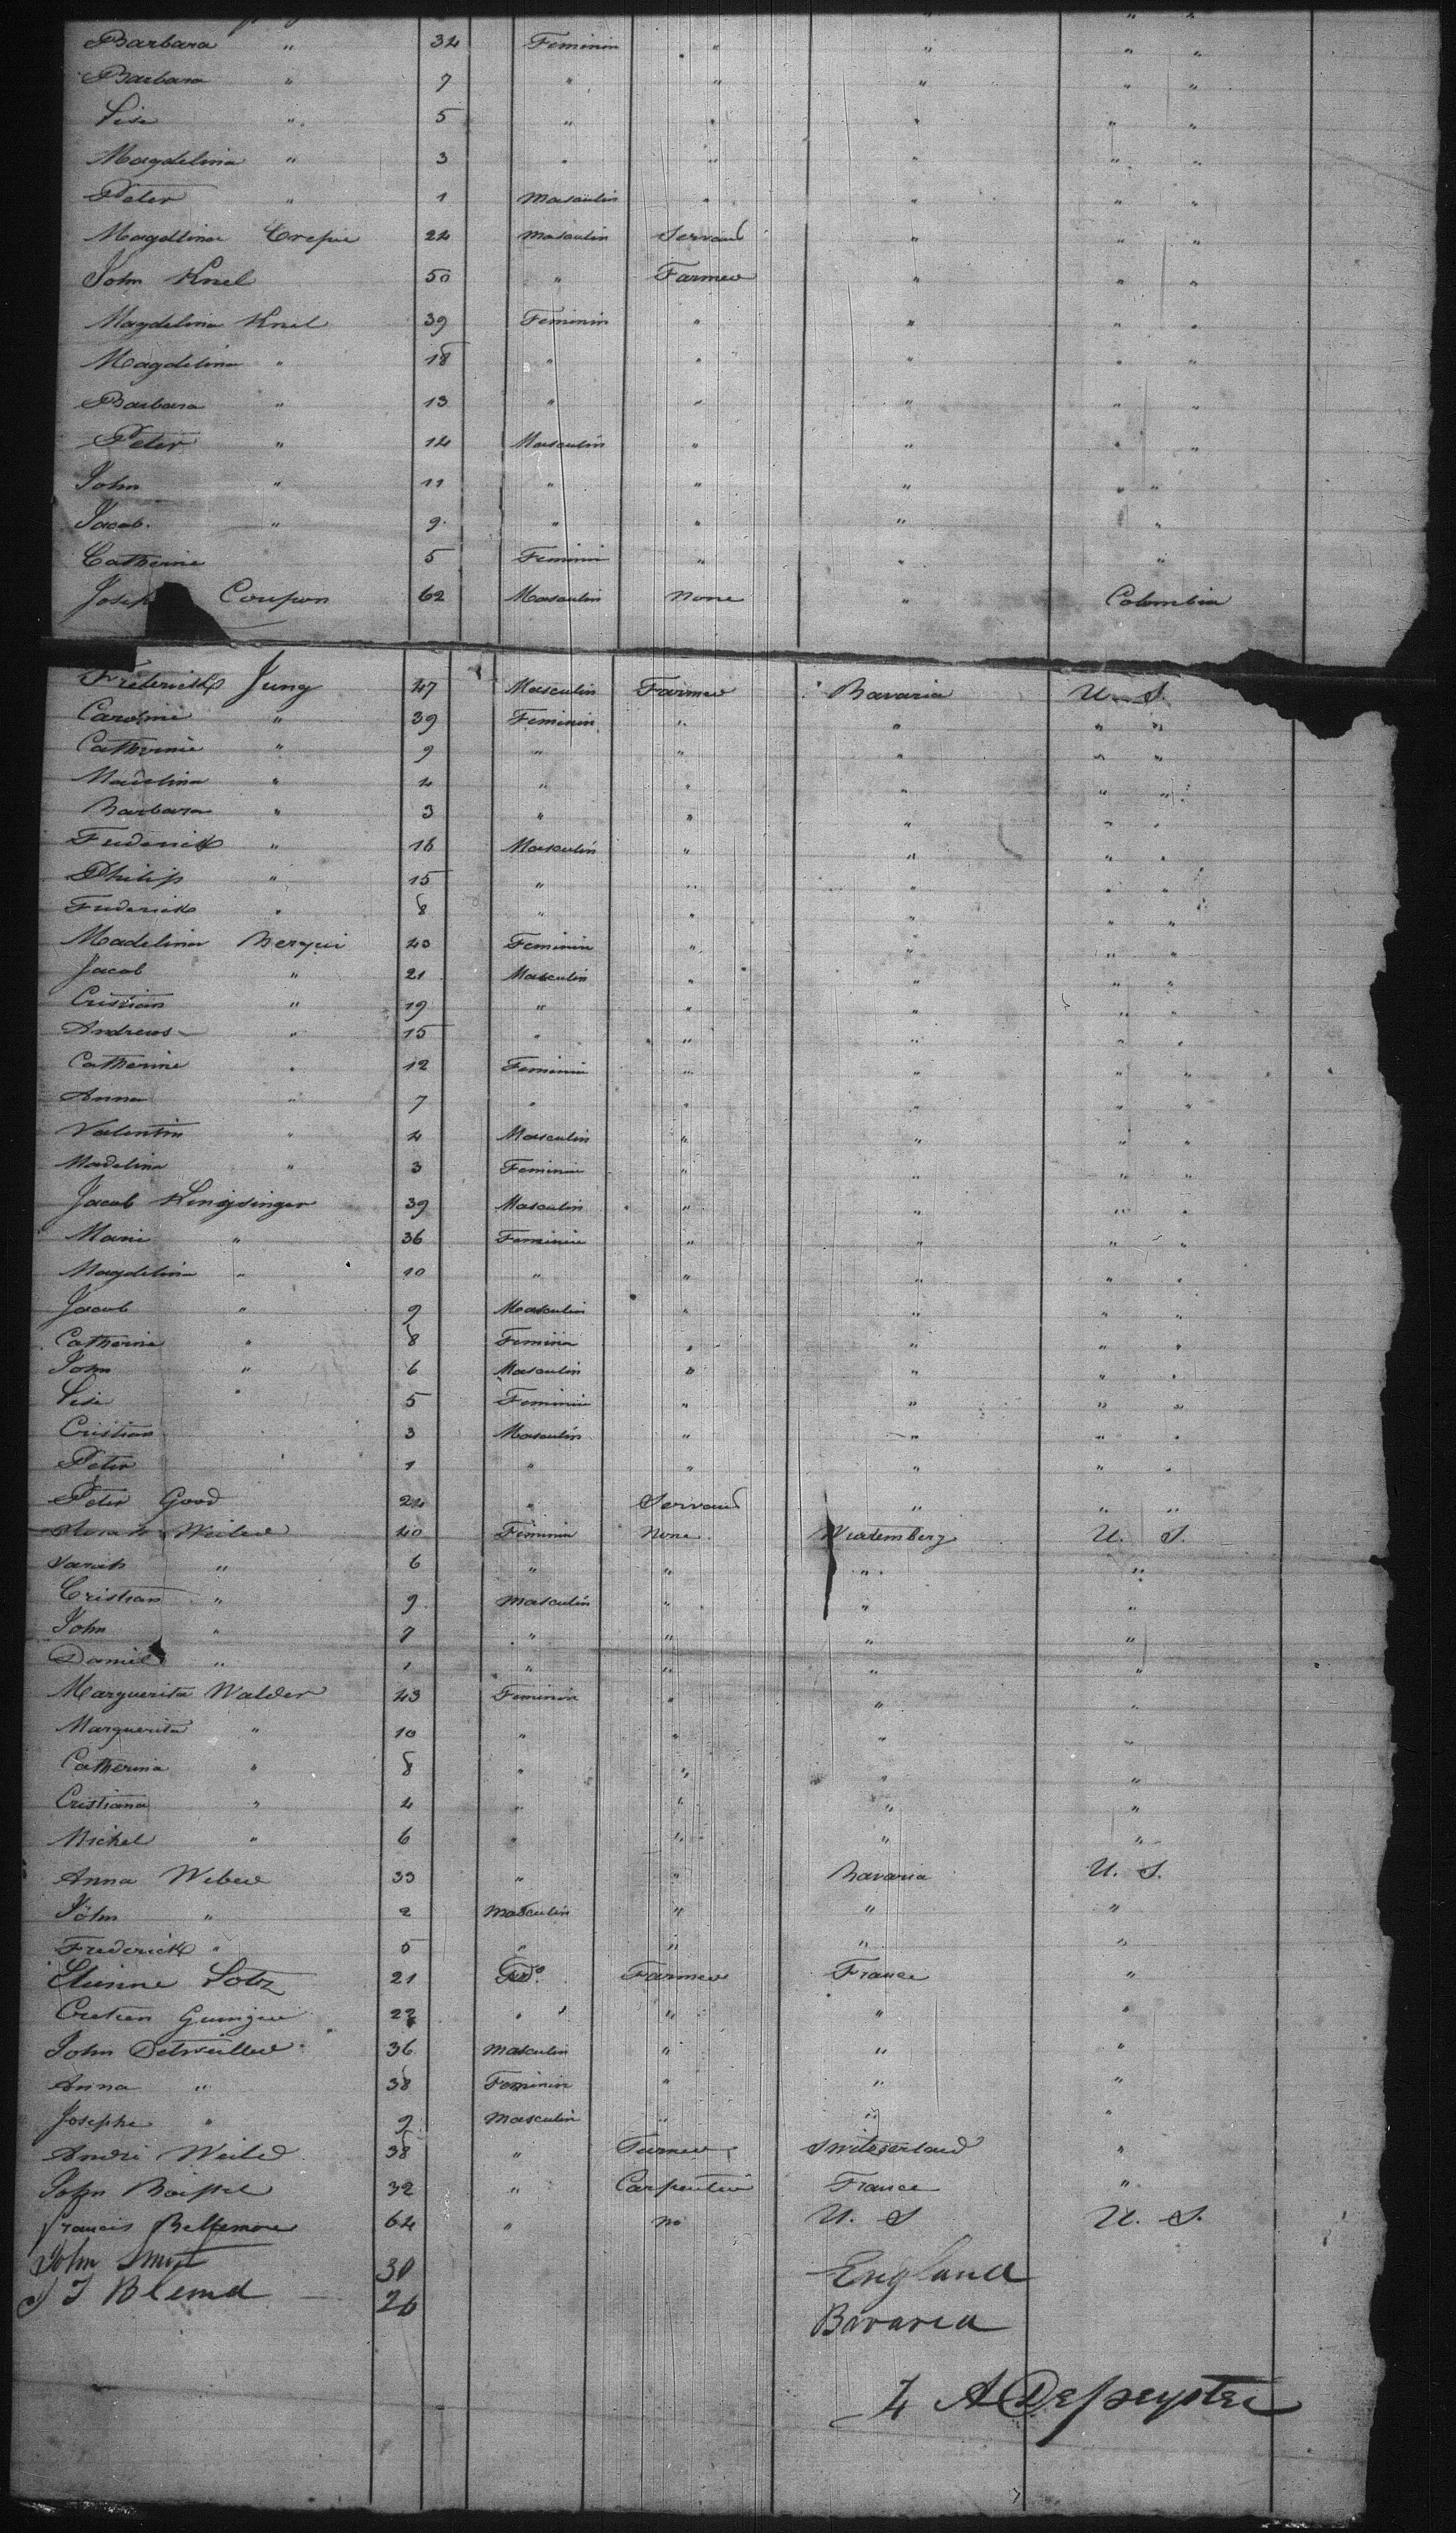 Barbara " 34 Feminin " " " "
Barbara " 7 " " " " "
Lise " 5 " " " " "
Magdelina " 3 " " " " "
Peter " 1 Masculin " " " "
Magdelina Crepie 24 Masculin Servand " " "
John Knel 50 " Farmer " " "
Magdelina Knel 39 Feminin " " " "
Magdelina " 18 " " " " "
Barbara " 13 " " " " "
Peter " 14 Masculin " " " "
John " 11 " " " " "
Jacob " 9 " " " "
Catherine 5 Feminin " " "
Joseph Coupon 62 Masculin None " Colombia
Frederick Jung 47 Masculin Farmer Bavaria U. S.
Caroline " 39 Feminin " " " "
Catherine " 9 " " " " "
Madelina " 4 " " " " "
Barbara " 3 " " " " "
Frederick " 16 Masculin " " " "
Philip " 15 " " " " "
Frederick " 8 " " " " "
Madelina Bergui 43 Feminin " " " "
Jacob " 21 Masculin " " " "
Cristian " 19 " " " " "
Andrews " 15 " " " " "
Catherine " 12 Feminin " " " "
Anna " 7 " " " " "
Valentin " 4 Masculin " " " "
Madelina " 3 Feminin " " " "
Jacob Kingsinger 39 Masculin " " " "
Marie " 36 Feminin " " " "
Magdelina " 10 " " " " "
Jacob " 9 Masculin " " " "
Catherine " 8 Feminin " " " "
John " 6 Masculin " " " "
Lise " 5 Feminin " " " "
Cristian 3 Masculin " " " "
Peter 1 " " " " "
Peter Good 24 " Servand " " "
Weiler 40 Feminin None Wurtemberg U. S.
Sarah " 6 " " " "
Cristian " 9 Masculin " " "
John " 7 " " " "
Daniel " 1 " " " "
Marguerita Walder 43 Feminin " " "
Marguerita " 10 " " " "
Catherina " 8 " " " "
Cristiana " 4 " " " "
Michel " 6 " " " "
Anna Weber 33 " " Bavaria U. S.
John " 2 Masculin " " "
Frederick " 5 " " " "
Etienne Sotz 21 do Farmer France "
22 " " " "
John Detweiller 36 Masculin " " "
Anna " 38 Feminin " " "
Josephe " 9 Masculin " " "
André Weiler 38 " Farmer Switzerland "
John 32 " Carpenter France "
Francis Bellemore 64 " No U. S U. S.
John Smit 30 England
J J Blemd 26 Bavaria
A Depeyster